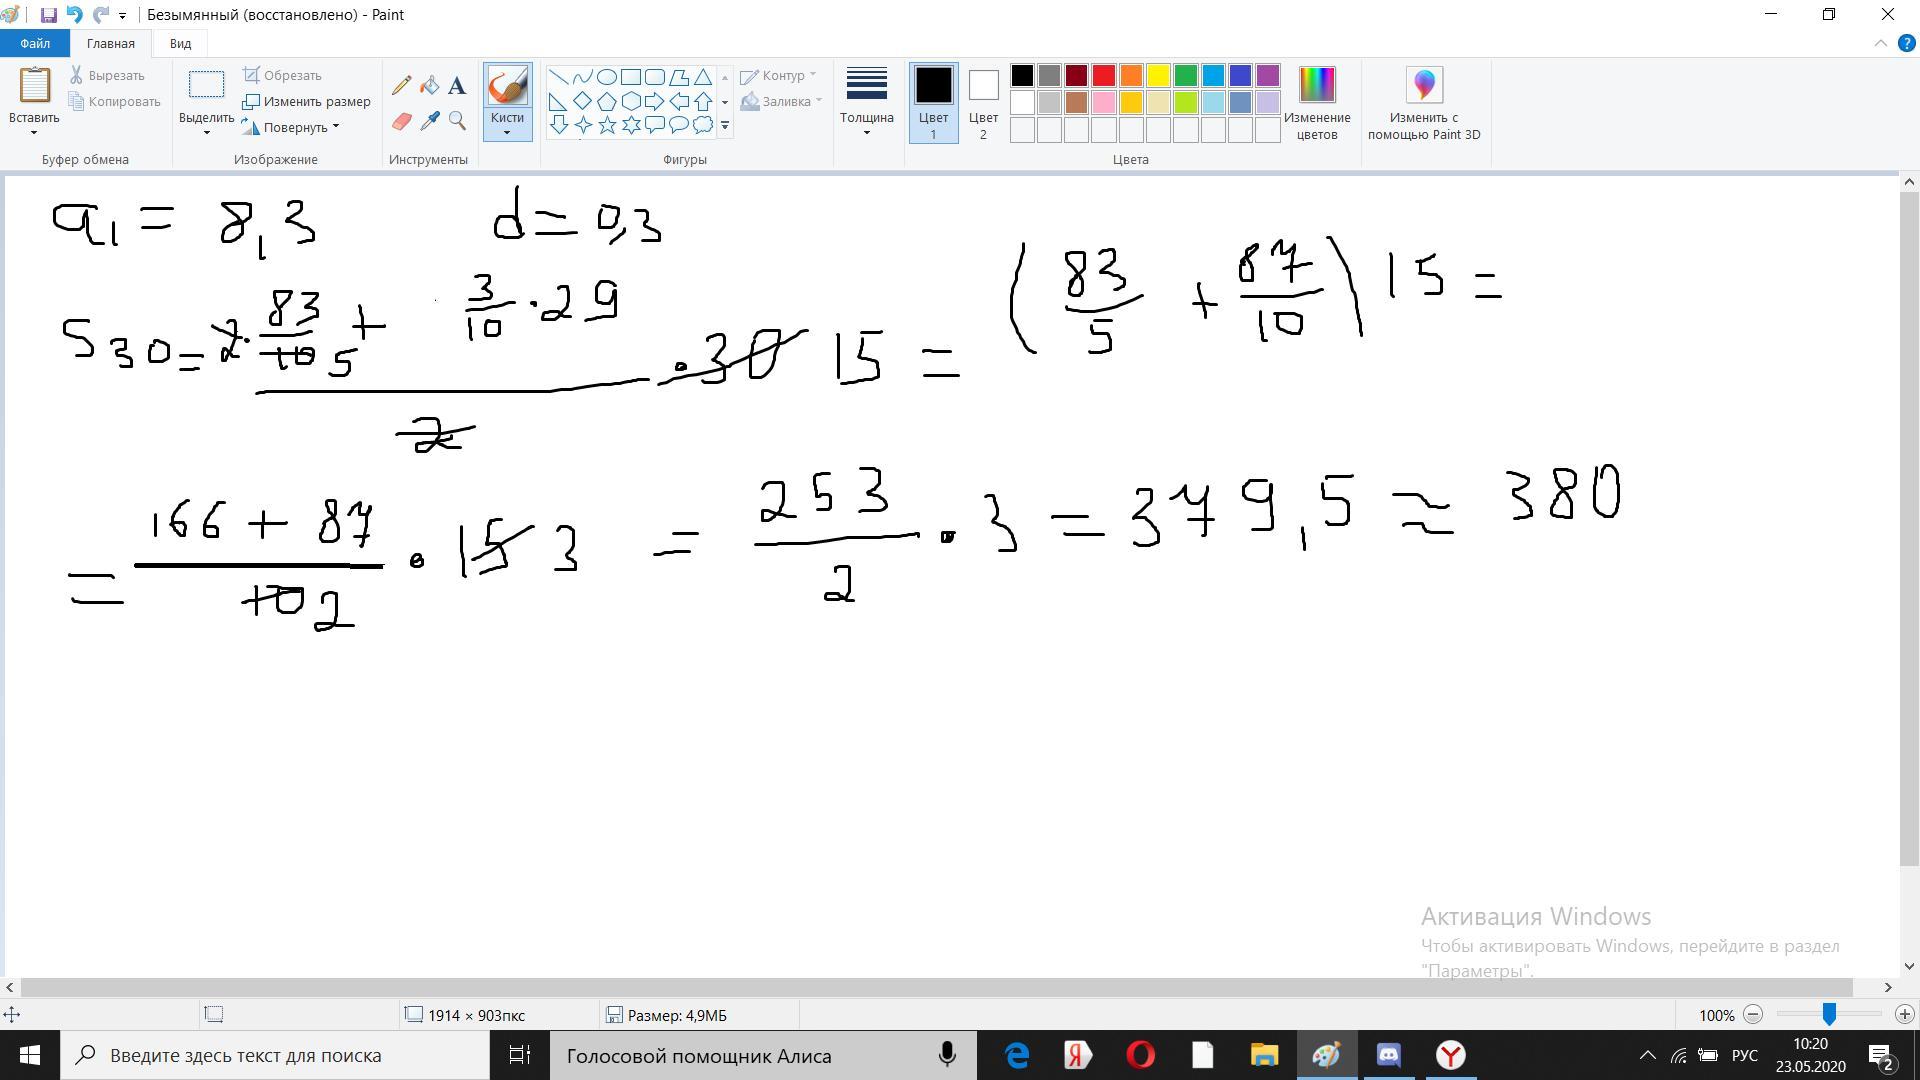 Безымянный (восстановлено) - Paint
Файл Главная Вид
Вставить
Вырезать
Копировать
Буфер обмена
Выделить
Обрезать
Изменить размер
Повернуть
Изображение
Инструменты
Кисти
Фигуры
Контур
Заливка
Толщина
Цвет 1
Цвет 2
Цвета
Изменение цветов
Изменить с помощью Paint 3D
a₁ = 8,3 d = 0,3
S30 = 2 · 83/10 5 + 3/10 · 29 / 2 · 30 15 = (83/5 + 87/10) 15 =
= 166 + 87 / 10 2 · 15 3 = 253/2 · 3 = 379,5 ≈ 380
Активация Windows
Чтобы активировать Windows, перейдите в раздел
"Параметры".
1914 × 903пкс Размер: 4,9МБ 100%
Введите здесь текст для поиска
Голосовой помощник Алиса
РУС
10:20
23.05.2020
2